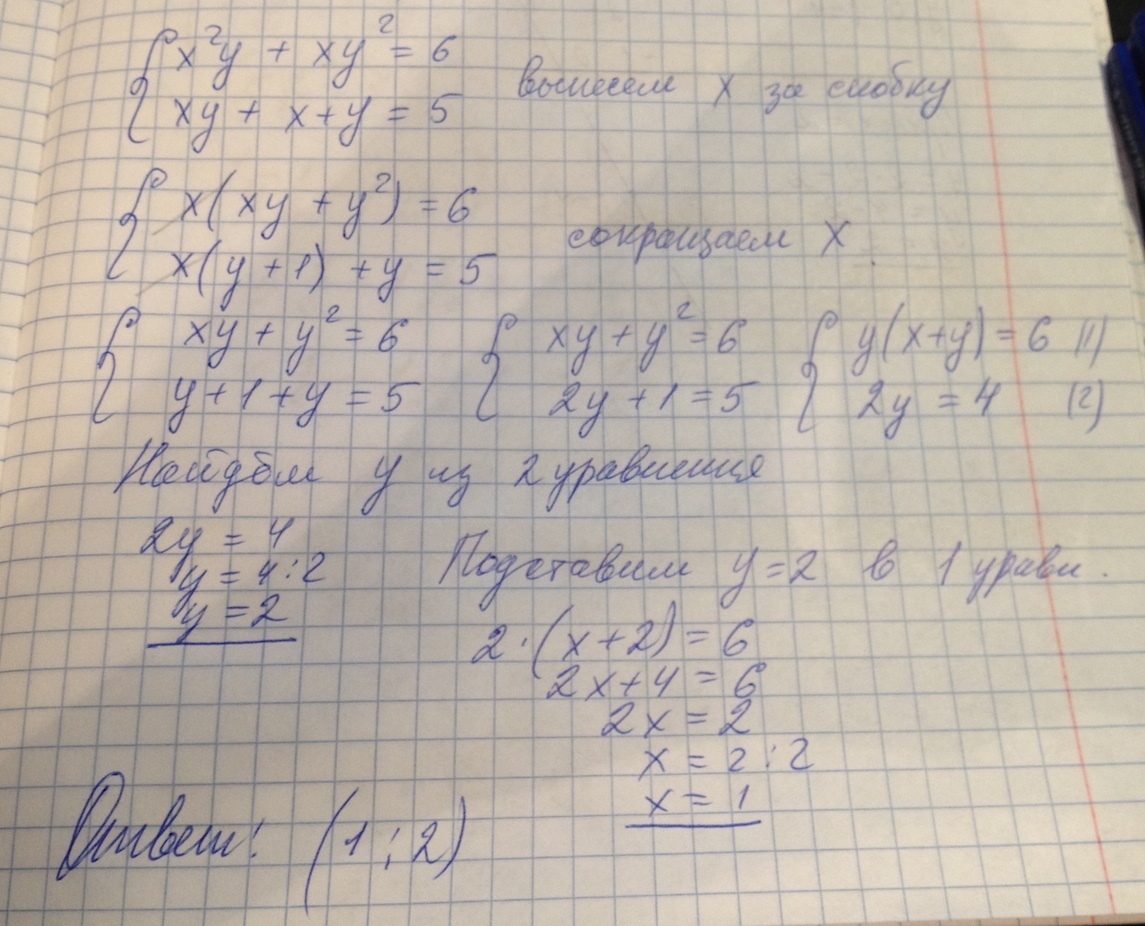 x²y + xy² = 6
xy + x+y = 5
вынесем x за скобку
x(xy + y²) = 6
x(y+1) + y = 5
сокращаем x
xy + y² = 6
y+1+y = 5
xy + y² = 6
2y+1 = 5
y(x+y) = 6 (1)
2y = 4 (2)
Найдём y из 2 уравнения
2y = 4
y = 4:2
y = 2
Подставим y=2 в 1 уравн.
2·(x+2) = 6
2x+4 = 6
2x = 2
x = 2:2
x = 1
Ответ: (1;2)